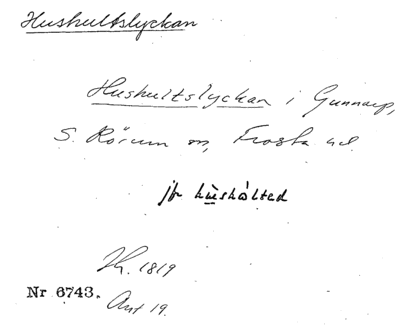 Hushultslyckan
Hushultslyckan i Gunnarp,
S. Rörum sn, Frosta hd.
jfr hùshòlted
Th. 1819
Nr 6743.
Ant 19.